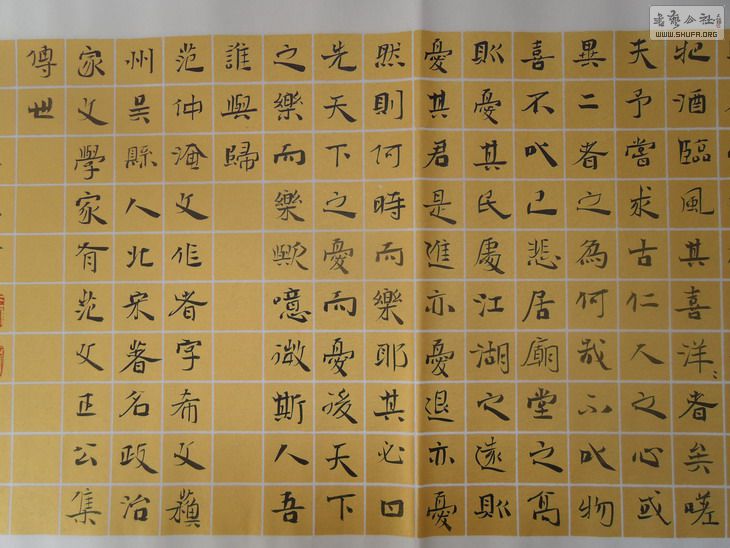 把酒臨風其喜洋〻者矣嗟
夫予嘗求古仁人之心或
異二者之為何哉不以物
喜不以己悲居廟堂之高
則憂其民處江湖之遠則
憂其君是進亦憂退亦憂
然則何時而樂耶其必曰
先天下之憂而憂後天下
之樂而樂歟噫微斯人吾
誰與歸
范仲淹文作者字希文蘇
州吳縣人北宋著名政治
家文學家有范文正公集
傳世
書藝公社
WWW.SHUFA.ORG